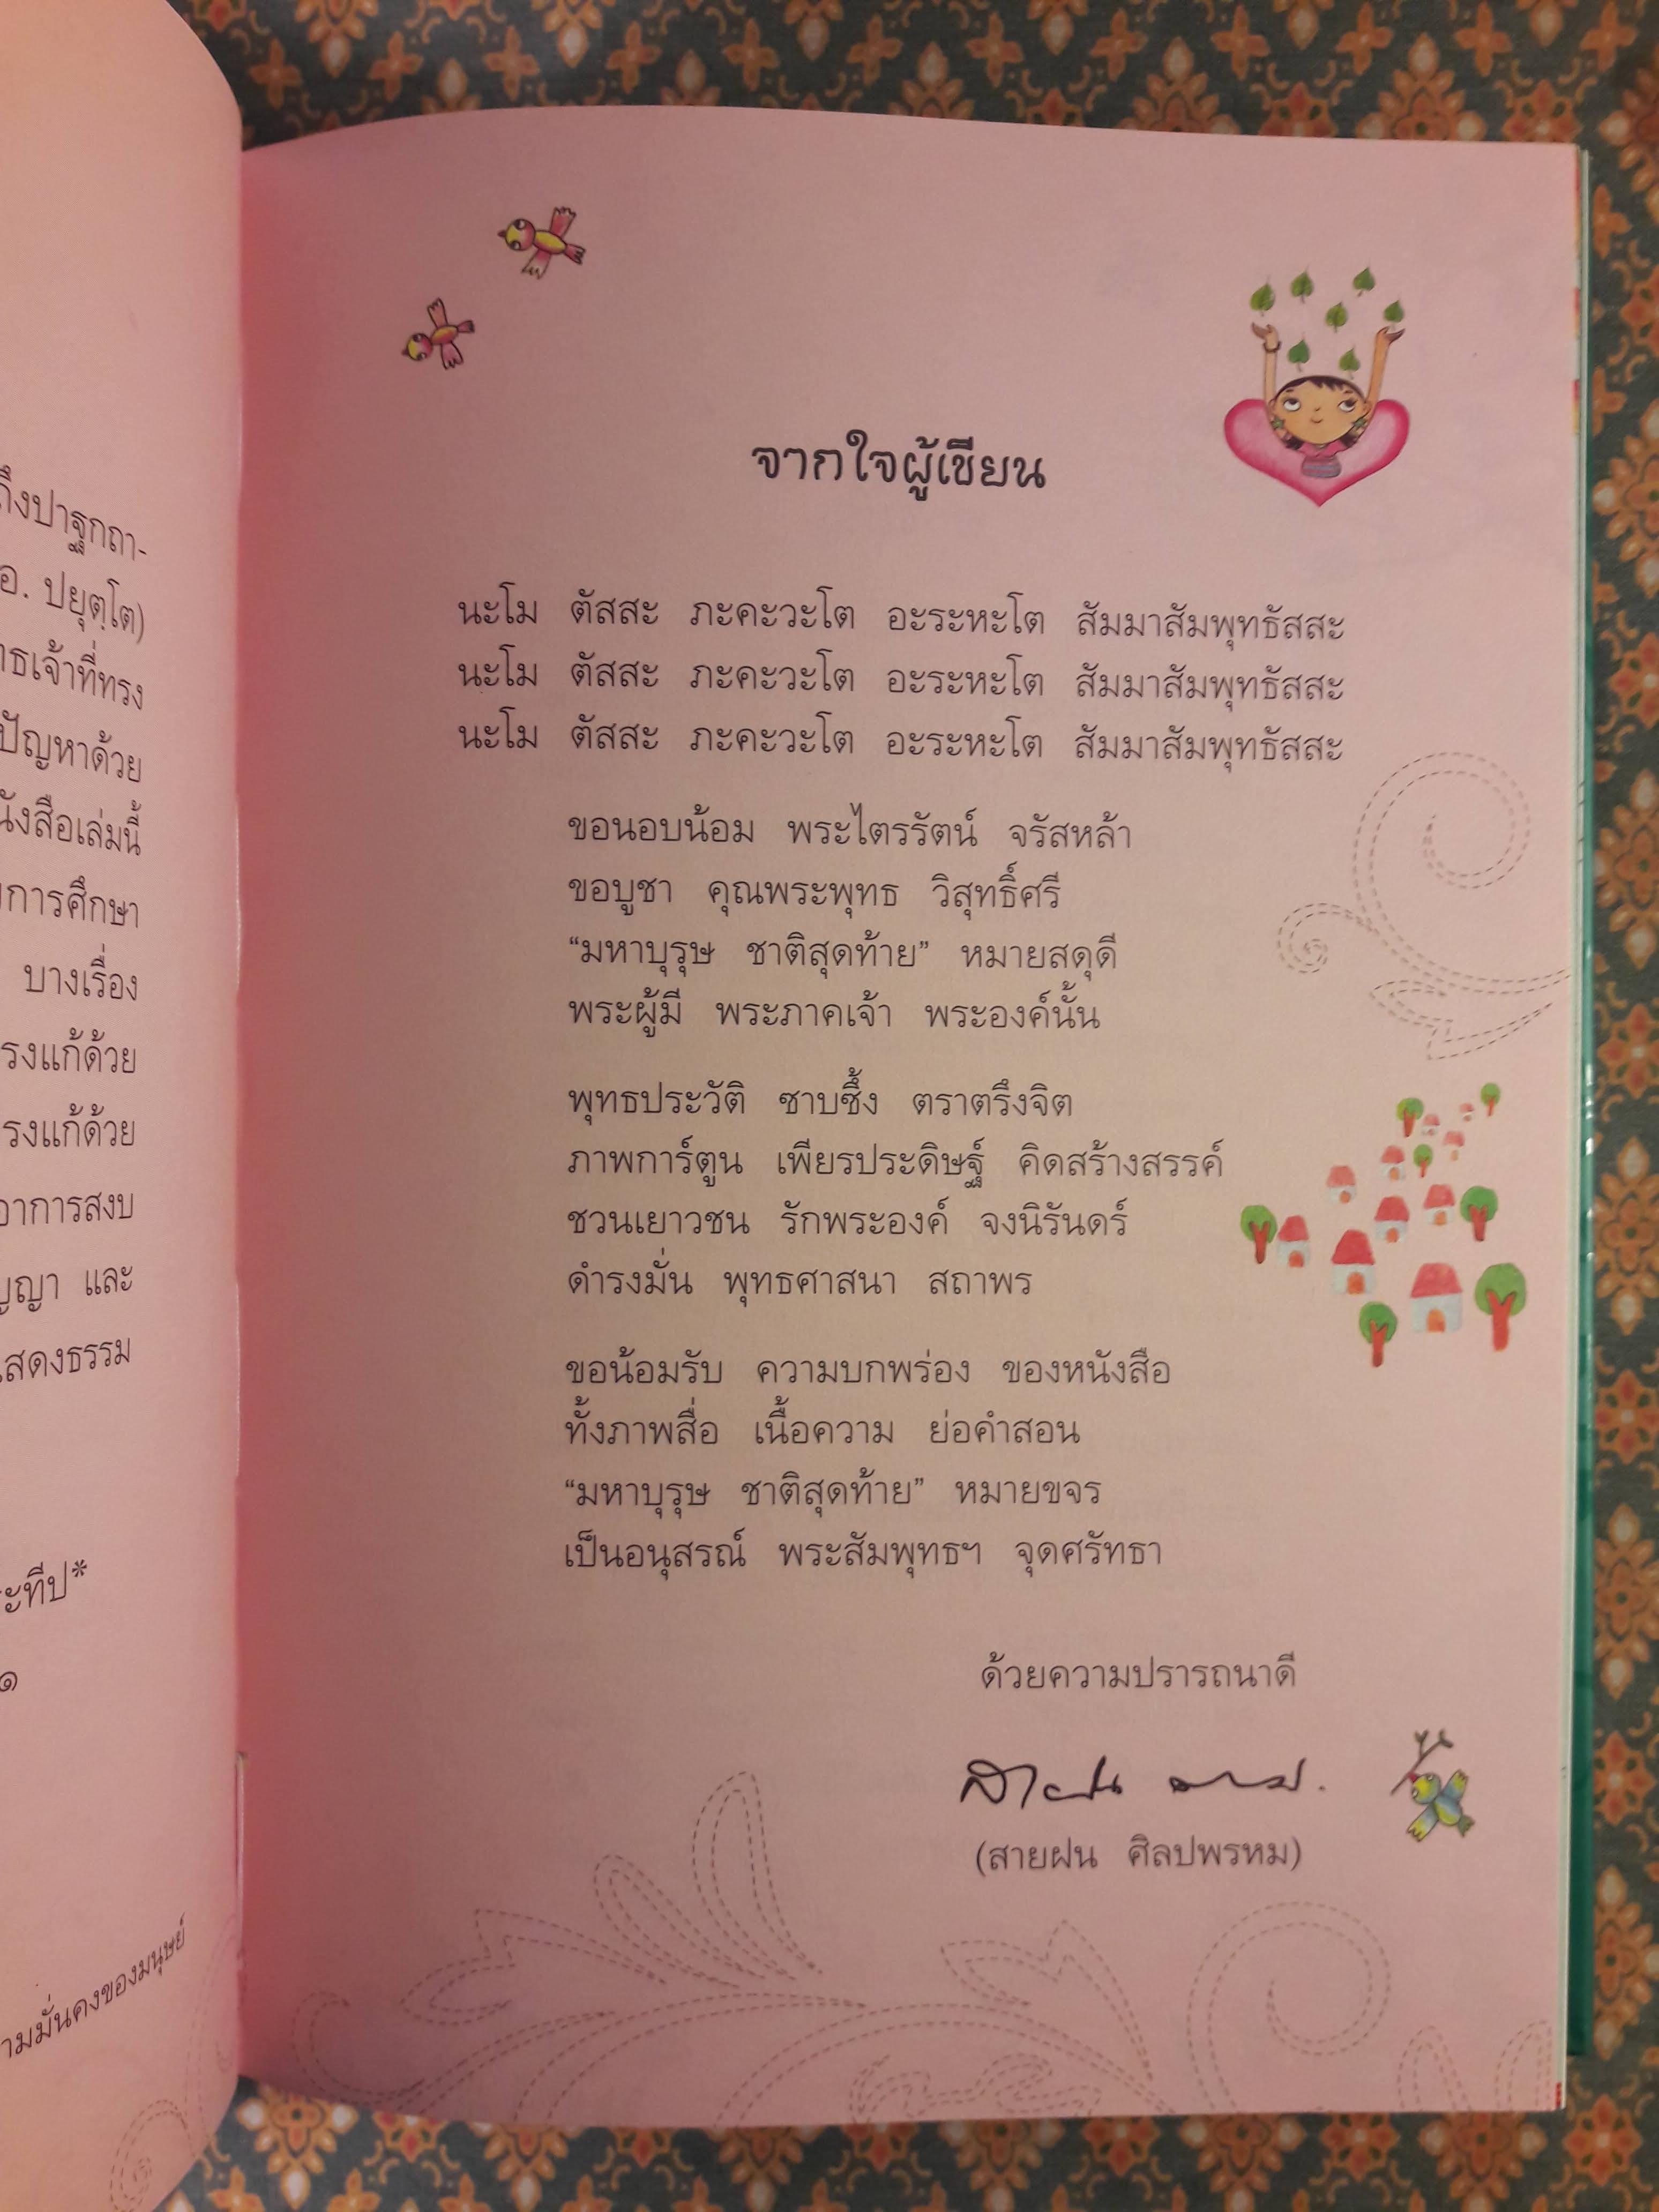 ถึงปาฐกถา-
อ. ปยุตฺโต)
เจ้าที่ทรง
ปัญหาด้วย
หนังสือเล่มนี้
การศึกษา
บางเรื่อง
ทรงแก้ด้วย
ทรงแก้ด้วย
อาการสงบ
และ
แสดงธรรม
จากใจผู้เขียน
นะโม ตัสสะ ภะคะวะโต อะระหะโต สัมมาสัมพุทธัสสะ
นะโม ตัสสะ ภะคะวะโต อะระหะโต สัมมาสัมพุทธัสสะ
นะโม ตัสสะ ภะคะวะโต อะระหะโต สัมมาสัมพุทธัสสะ
ขอนอบน้อม พระไตรรัตน์ จรัสหล้า
ขอบูชา คุณพระพุทธ วิสุทธิ์ศรี
“มหาบุรุษ ชาติสุดท้าย” หมายสดุดี
พระผู้มี พระภาคเจ้า พระองค์นั้น
พุทธประวัติ ซาบซึ้ง ตราตรึงจิต
ภาพการ์ตูน เพียรประดิษฐ์ คิดสร้างสรรค์
ชวนเยาวชน รักพระองค์ จงนิรันดร์
ดำรงมั่น พุทธศาสนา สถาพร
ขอน้อมรับ ความบกพร่อง ของหนังสือ
ทั้งภาพสื่อ เนื้อความ ย่อคำสอน
“มหาบุรุษ ชาติสุดท้าย” หมายขจร
เป็นอนุสรณ์ พระสัมพุทธฯ จุดศรัทธา
ด้วยความปรารถนาดี
(สายฝน ศิลปพรหม)